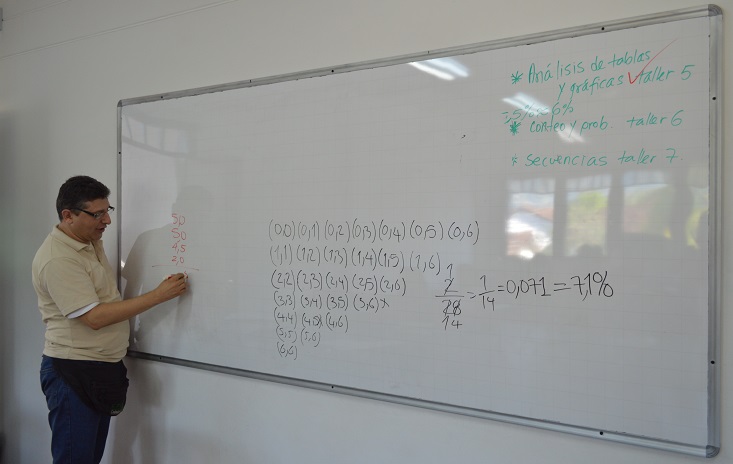 * Análisis de tablas
y gráficas ✓ taller 5
* conteo y prob. taller 6
* secuencias taller 7.
5,0
5,0
4,5
2,0
(0,0) (0,1) (0,2) (0,3) (0,4) (0,5) (0,6)
(1,1) (1,2) (1,3) (1,4) (1,5) (1,6)
(2,2) (2,3) (2,4) (2,5) (2,6)
(3,3) (3,4) (3,5) (3,6) x
(4,4) (4,5) (4,6)
(5,5) (5,6)
(6,6)
1
2/28 = 1/14 = 0,071 = 7,1%
14